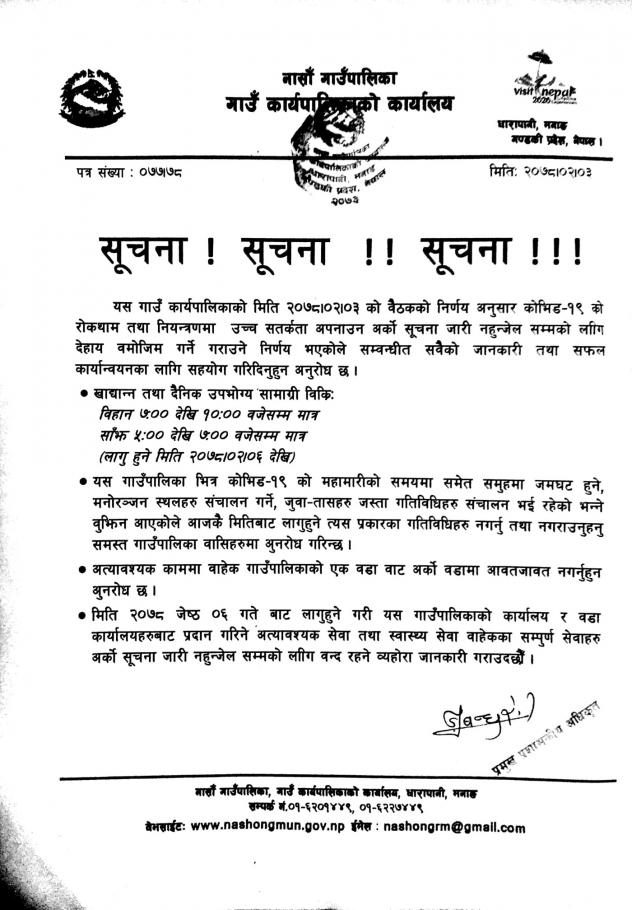 नासोँ गाउँपालिका
गाउँ कार्यपालिकाको कार्यालय
visit nepal
2020
धारापानी, मनाङ
गण्डकी प्रदेश, नेपाल ।
धारापानी, मनाङ
गण्डकी प्रदेश, नेपाल
२०७३
पत्र संख्या : ०७७।७८
मिति: २०७८।०२।०३
सूचना ! सूचना !! सूचना !!!
यस गाउँ कार्यपालिकाको मिति २०७८।०२।०३ को वैठकको निर्णय अनुसार कोभिड-१९ को
रोकथाम तथा नियन्त्रणमा उच्च सतर्कता अपनाउन अर्को सूचना जारी नहुन्जेल सम्मको लाीग
देहाय वमोजिम गर्ने गराउने निर्णय भएकोले सम्वन्धीत सवैको जानकारी तथा सफल
कार्यान्वयनका लागि सहयोग गरिदिनुहुन अनुरोध छ ।
● खाद्यान्न तथा दैनिक उपभोग्य सामाग्री विकि:
विहान ७:०० देखि १०:०० वजेसम्म मात्र
साँझ ५:०० देखि ७:०० वजेसम्म मात्र
(लागु हुने मिति २०७८।०२।०६ देखि)
● यस गाउँपालिका भित्र कोभिड-१९ को महामारीको समयमा समेत समुहमा जमघट हुने,
मनोरञ्जन स्थलहरु संचालन गर्ने, जुवा-तासहरु जस्ता गतिविधिहरु संचालन भई रहेको भन्ने
वुझिन आएकोले आजकै मितिबाट लागुहुने त्यस प्रकारका गतिविधिहरु नगर्नु तथा नगराउनुहनु
समस्त गाउँपालिका वासिहरुमा अुनरोध गरिन्छ ।
● अत्यावश्यक काममा वाहेक गाउँपालिकाको एक वडा वाट अर्को वडामा आवतजावत नगर्नुहुन
अुनरोध छ ।
● मिति २०७८ जेष्ठ ०६ गते बाट लागुहुने गरी यस गाउँपालिकाको कार्यालय र वडा
कार्यालयहरुबाट प्रदान गरिने अत्यावश्यक सेवा तथा स्वास्थ्य सेवा वाहेकका सम्पुर्ण सेवाहरु
अर्को सूचना जारी नहुन्जेल सम्मको लाीग वन्द रहने व्यहोरा जानकारी गराउदछौँ ।
प्रमुख प्रशासकीय अधिकृत
नासोँ गाउँपालिका, गाउँ कार्यपालिकाको कार्यालय, धारापानी, मनाङ
सम्पर्क नं.०१-६२०१४४९, ०१-६२२७४४९
वेभसाईट: www.nashongmun.gov.np ईमेल : nashongrm@gmail.com